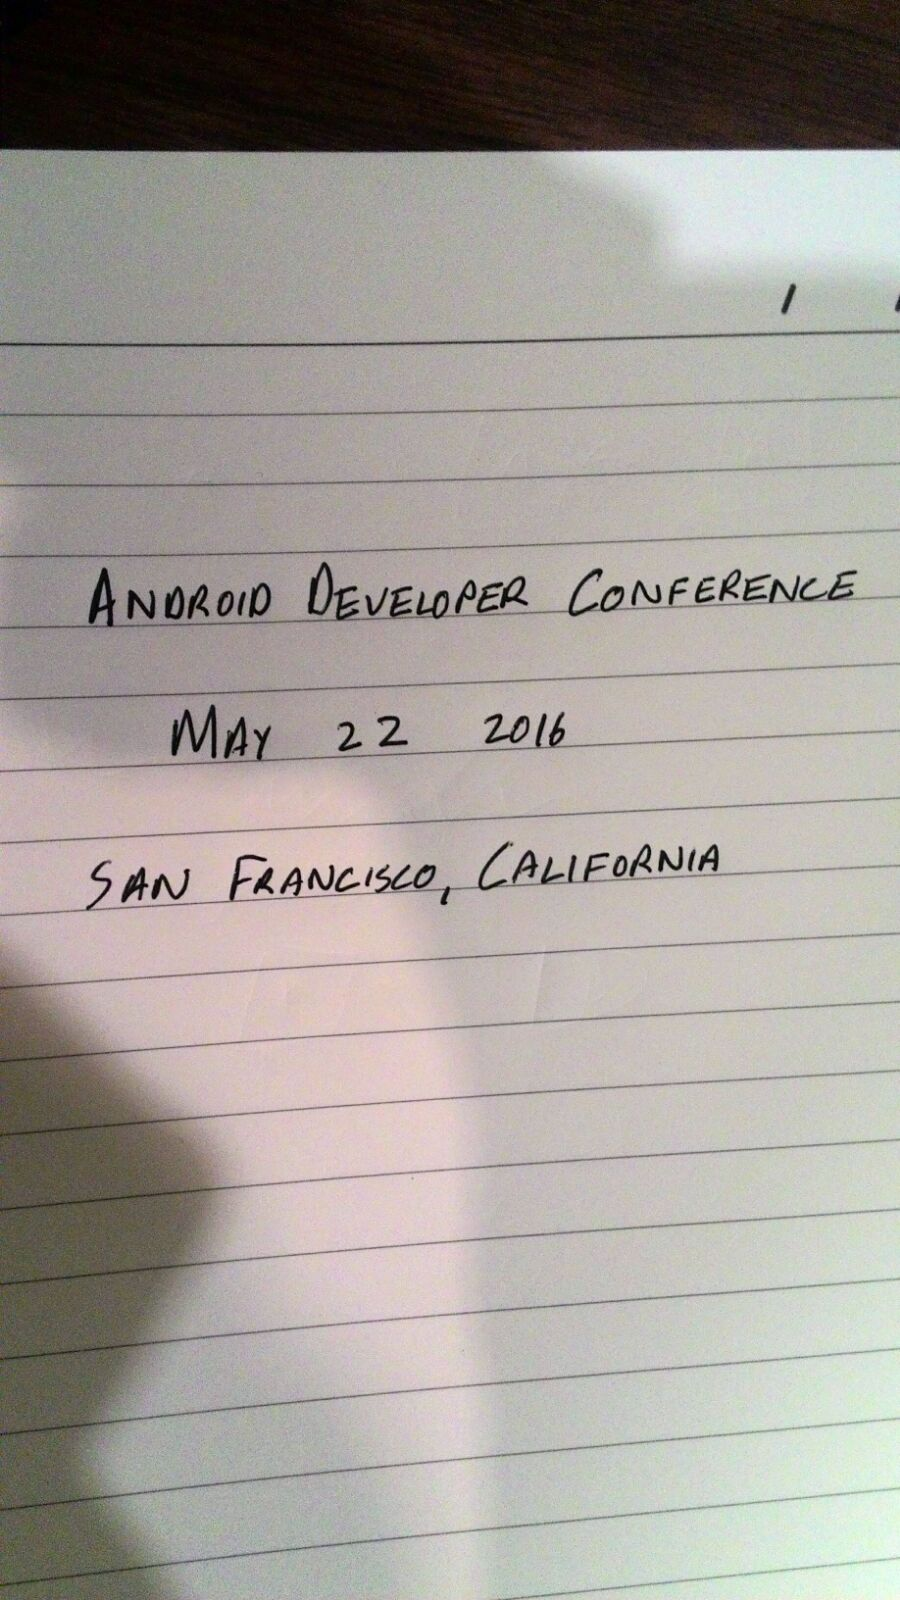 ANDROID DEVELOPER CONFERENCE
MAY 22 2016
SAN FRANCISCO, CALIFORNIA